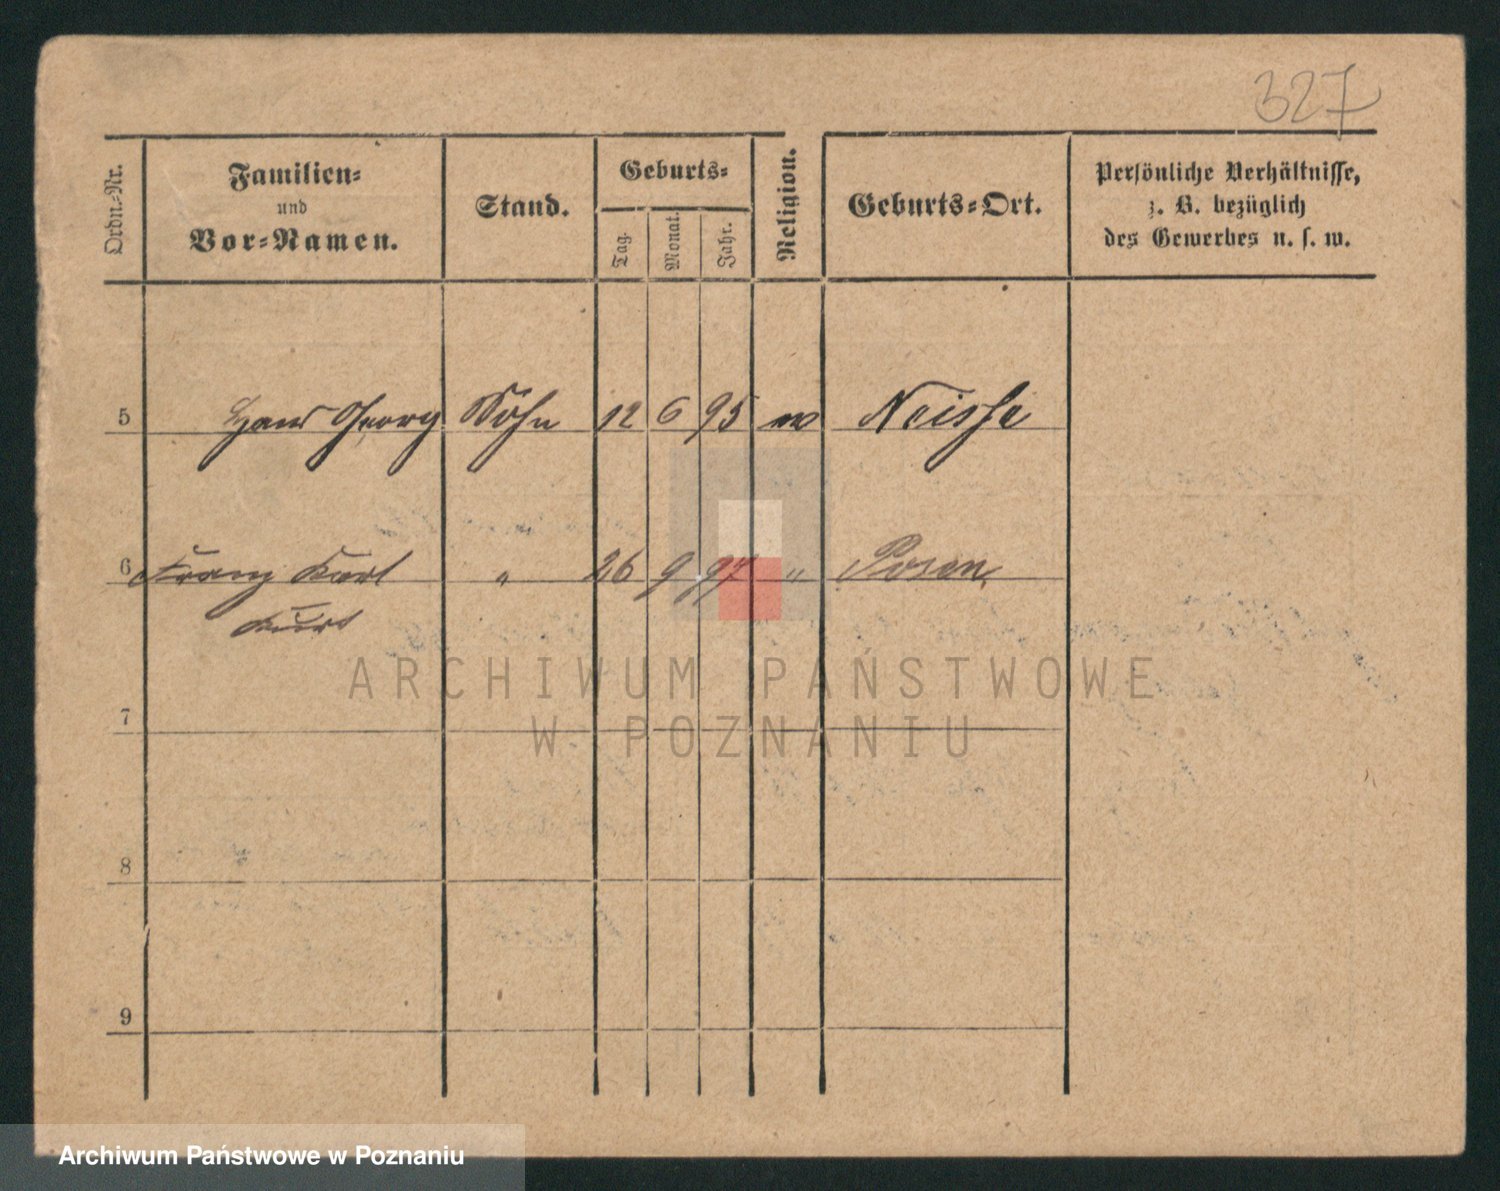 327
Ordn.-Nr. Familien- und Vor-Namen. Stand. Geburts- Tag. Monat. Jahr. Religion. Geburts-Ort. Persönliche Verhältnisse, z. B. bezüglich des Gewerbes u. s. w.
5 Hans Georg Sohn 12 6 95 Neisse
6 Franz Karl " 26 9 97 " Posen
Kurt
7
8
9
ARCHIWUM PAŃSTWOWE
W POZNANIU
Archiwum Państwowe w Poznaniu